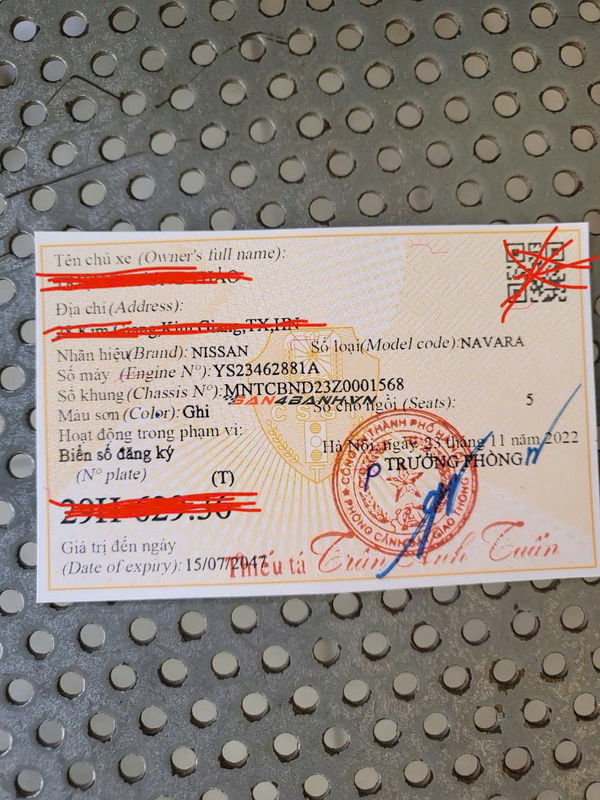 Tên chủ xe (Owner's full name):
Địa chỉ (Address):
Nhãn hiệu(Brand): NISSAN Số loại(Model code):NAVARA
Số máy (Engine N°):YS23462881A
Số khung (Chassis N°):MNTCBND23Z0001568
SAN4BANH.VN
Màu sơn (Color): Ghi Số chỗ ngồi (Seats): 5
Hoạt động trong phạm vi:
Hà Nội, ngày 23 tháng 11 năm 2022
Biển số đăng ký
TRƯỞNG PHÒNG
(N° plate) (T)
Giá trị đến ngày
(Date of expiry): 15/07/2047
Thiếu tá Trần Anh Tuấn